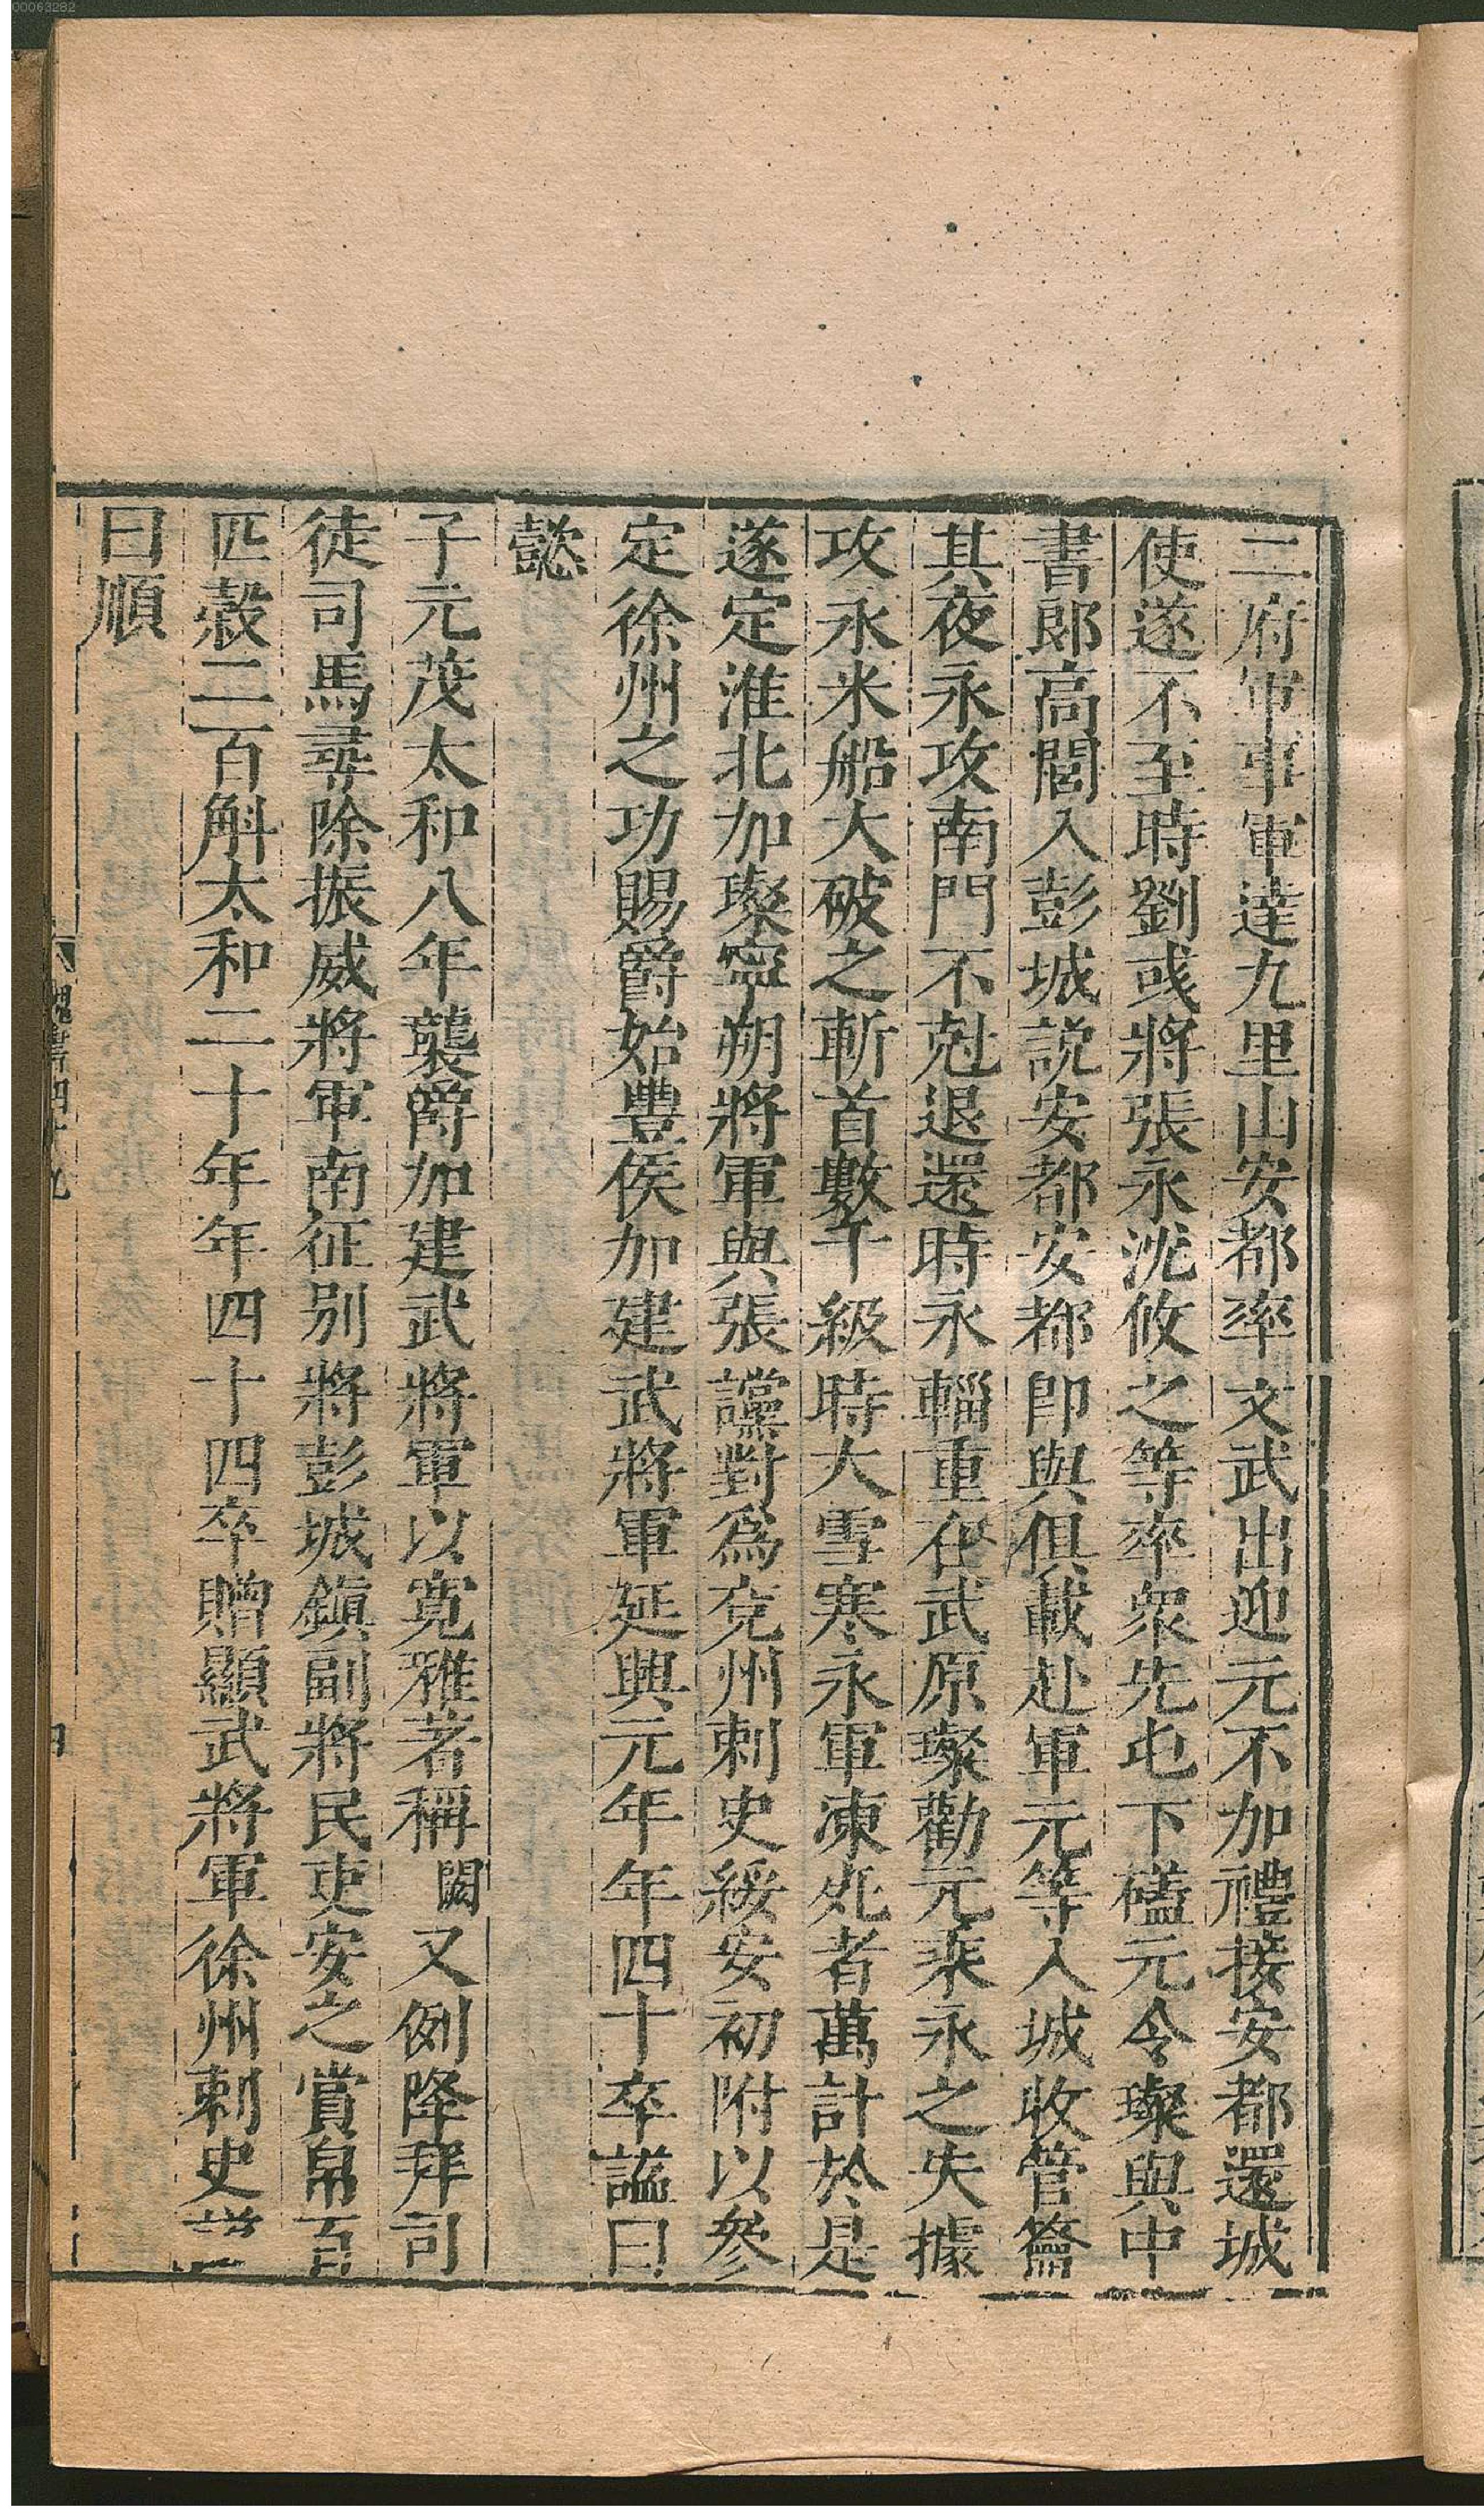 00063282
二府軍事軍達九里山安都率文武出迎元不加禮接安都還城
使遂不至時劉彧將張永沈攸之等率衆先屯下磕元令璨與中
書郎高閭入彭城説安都安都即與俱載赴軍元等入城收管籥
其夜永攻南門不剋退還時永輜重在武原璨勸元乘永之失據
攻永米船大破之斬首數千級時大雪寒永軍凍死者萬計於是
遂定淮北加璨寧朔將軍與張讜對爲兖州刺史綏安初附以參
定徐州之功賜爵始豐侯加建武將軍延興元年年四十卒諡曰
懿
子元茂太和八年襲爵加建武將軍以寛雅著稱闕又例降拜司
徒司馬尋除振威將軍南征别將彭城鎮副將民吏安之賞帛百
匹穀二百斛太和二十年年四十四卒贈顯武將軍徐州刺史諡
曰順
魏書四十九
四